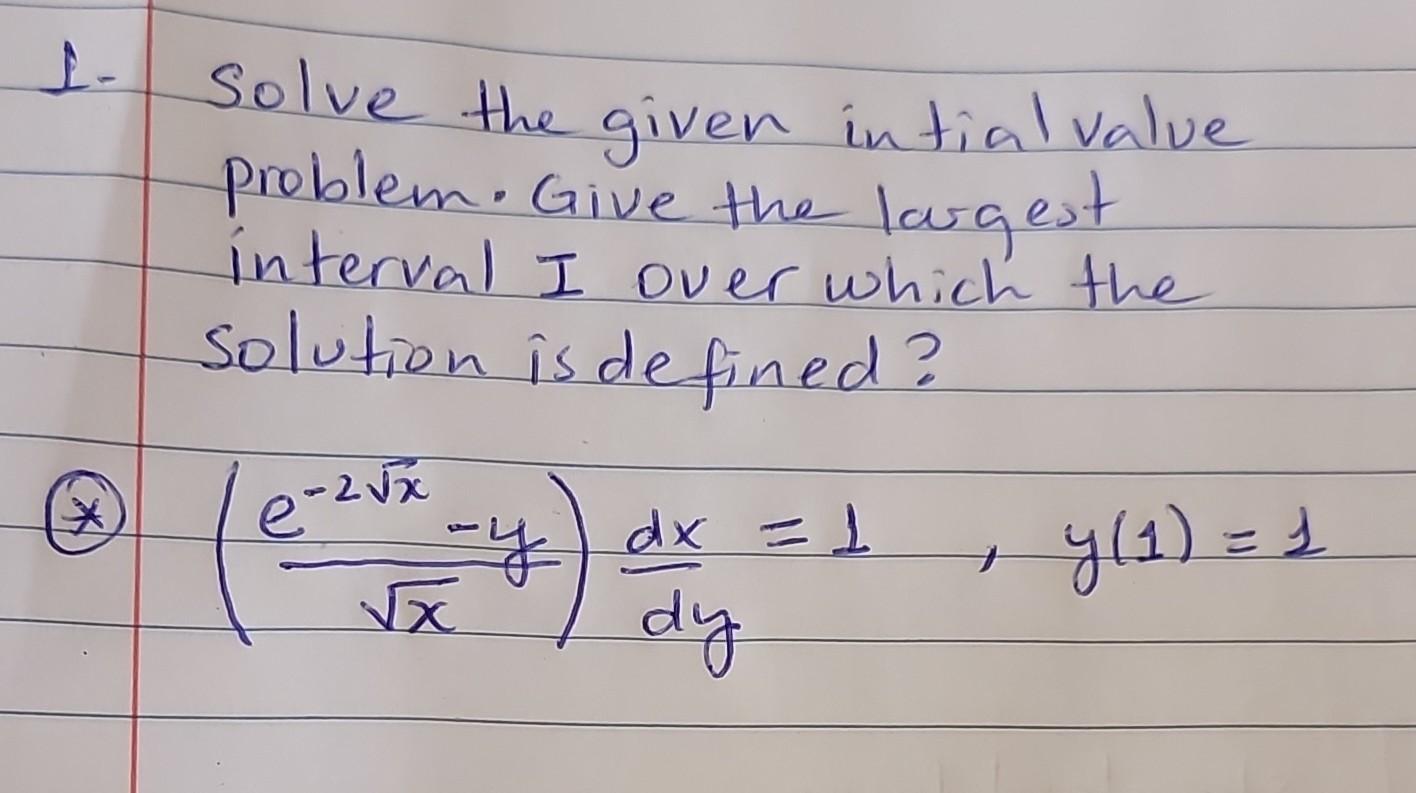 1- Solve the given intial value
problem. Give the largest
interval I over which the
solution is defined?
⊛ ( (e^{-2√x} - y) / √x ) dx/dy = 1 , y(1) = 1